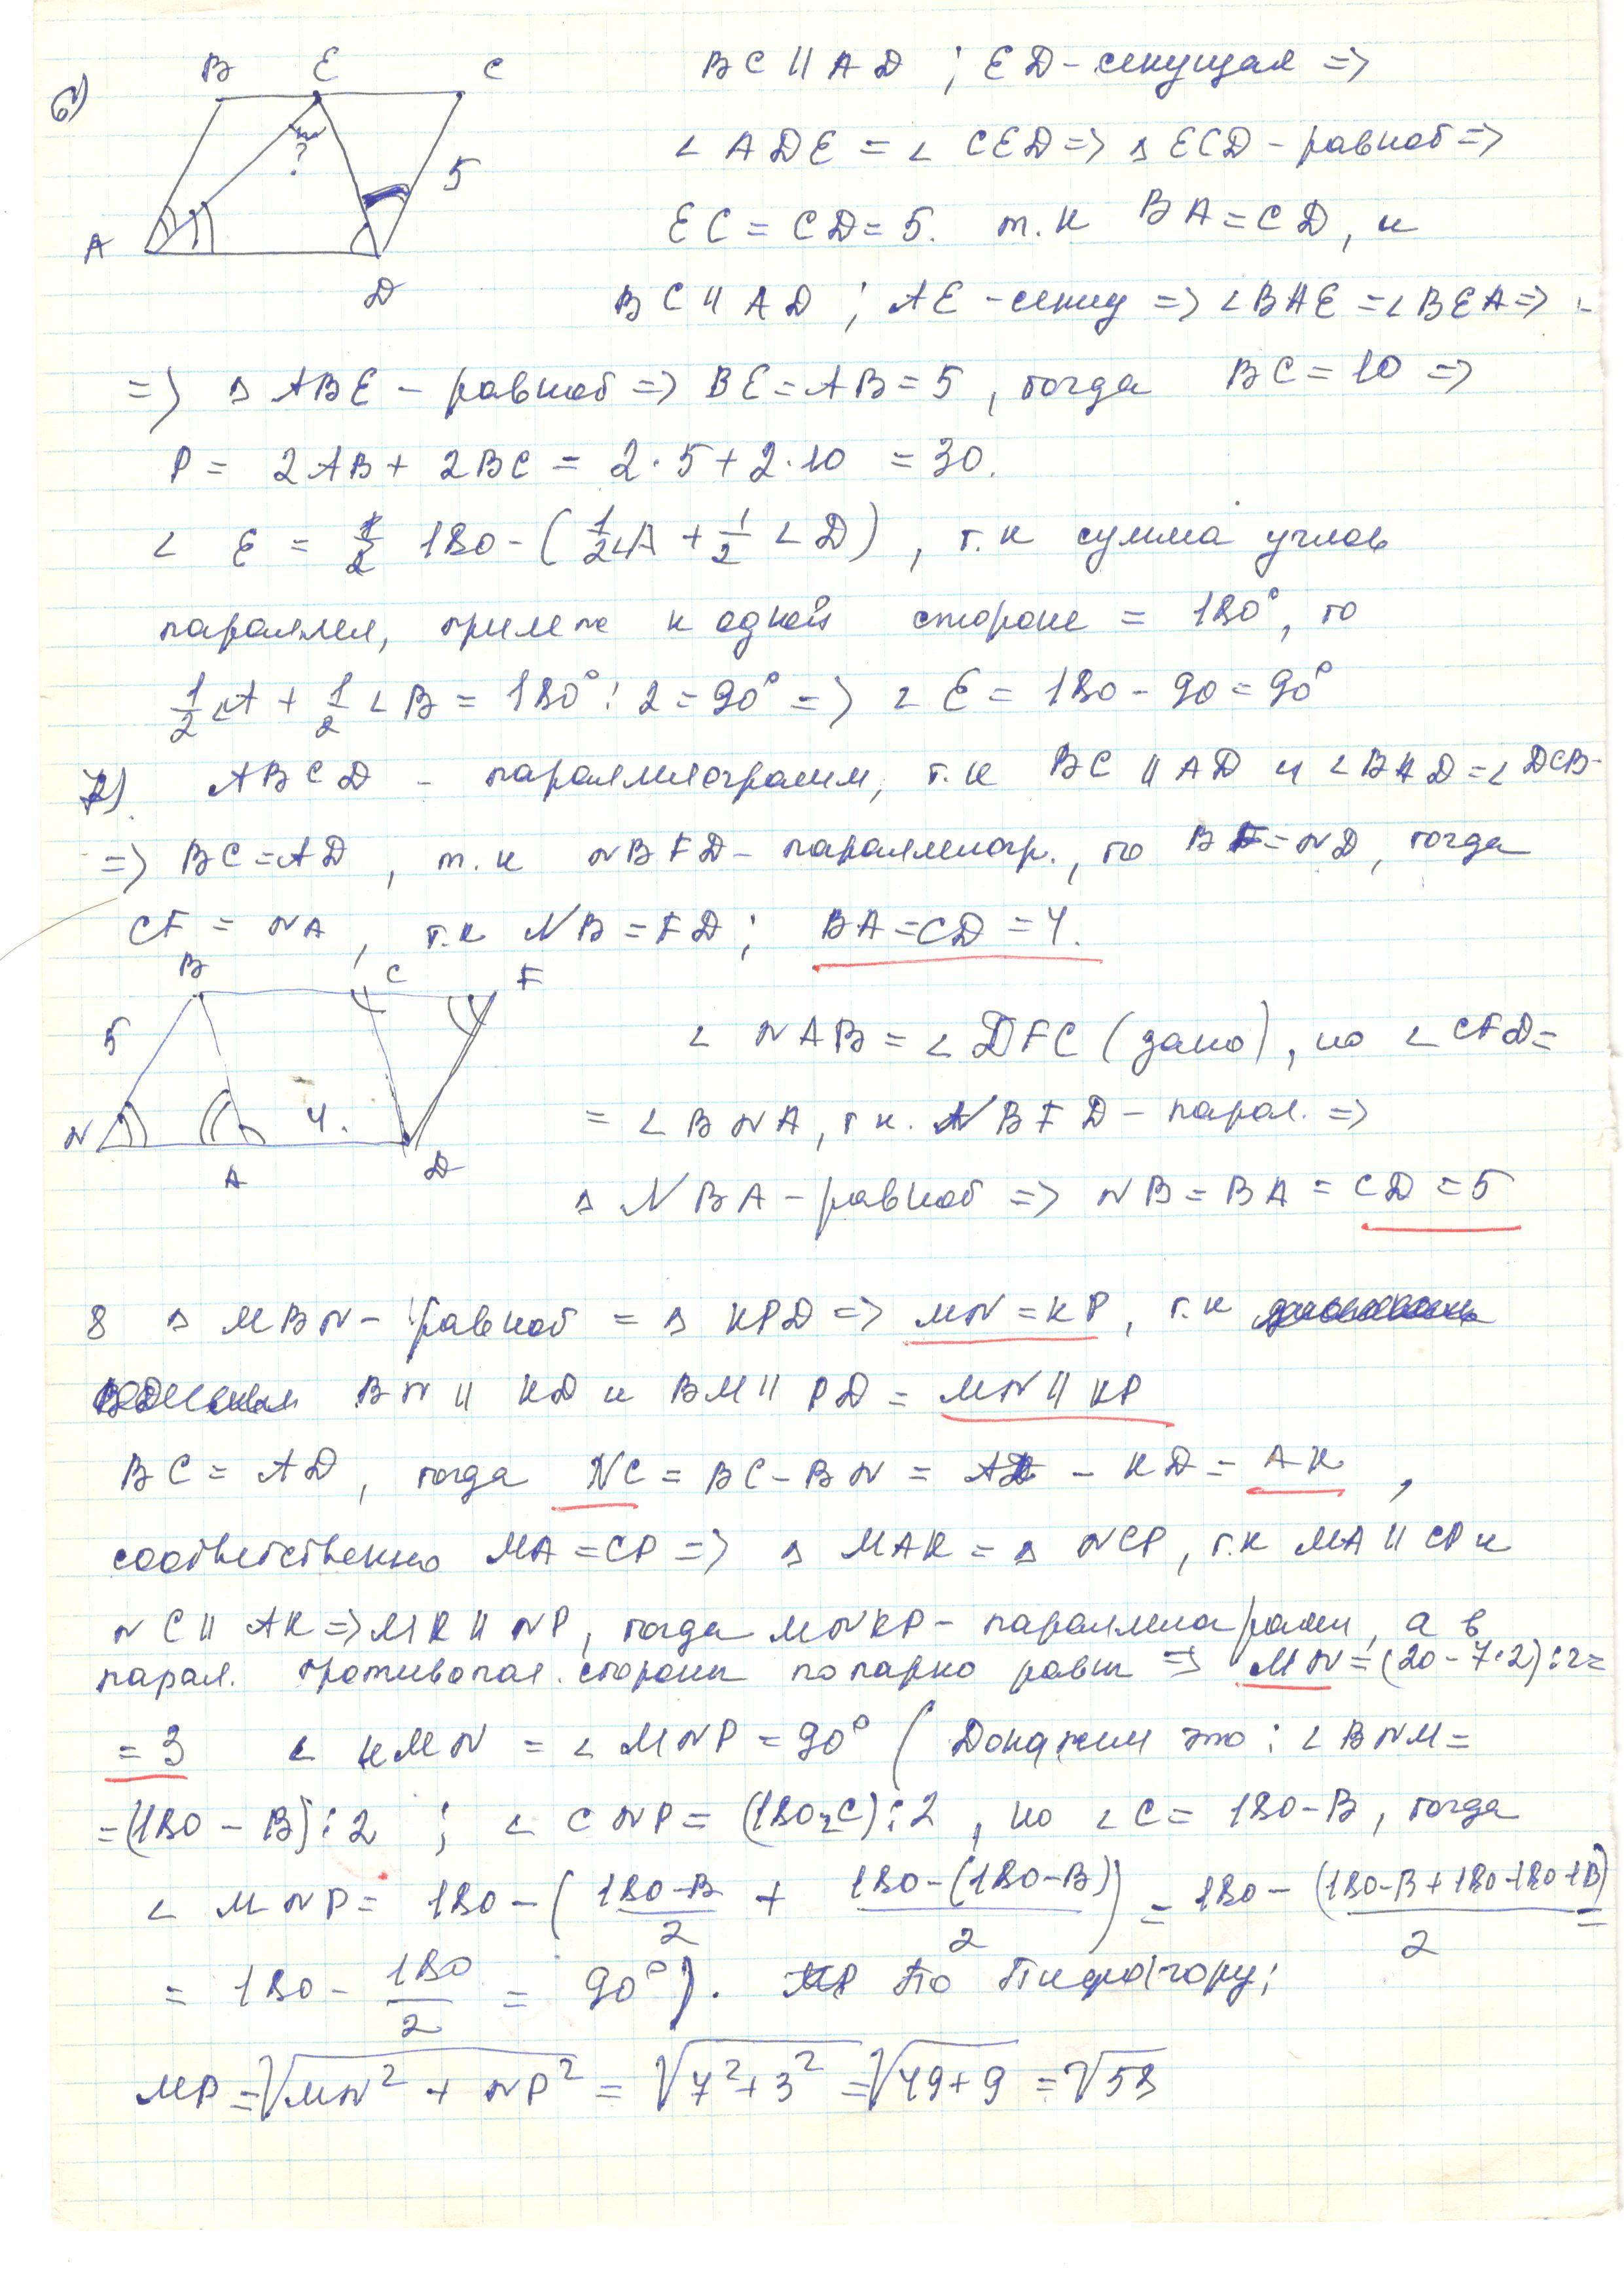 6)
B E C
?
5
A
D
BC || AD ; ED - секущая =>
∠ ADE = ∠ CED => Δ ECD - равноб =>
EC = CD = 5. т.к BA = CD, и
BC || AD ; AE - секущ => ∠BAE = ∠BEA =>
=> Δ ABE - равноб => BE = AB = 5 , тогда BC = 10 =>
P = 2AB + 2BC = 2·5 + 2·10 = 30.
∠ E = 180 - (1/2∠A + 1/2 ∠D) , т.к сумма углов
параллел, прилеж к одной стороне = 180°, то
1/2∠A + 1/2∠B = 180° : 2 = 90° => ∠E = 180 - 90 = 90°
7). ABCD - параллелограмм, т.к BC || AD и ∠BAD = ∠DCB-
=> BC = AD , т.к NBFD - параллелогр., то BF = ND, тогда
CF = NA , т.к NB = FD ; BA = CD = 4.
B C F
5
4.
N
A
D
∠ NAB = ∠DFC (дано), но ∠CFD =
= ∠BNA, т.к. NBFD - парал. =>
Δ NBA - равноб => NB = BA = CD = 5
8 Δ MBN - равноб = Δ KPD => MN = KP , т.к
BN || KD и BM || PD = MN || KP
BC = AD , тогда NC = BC - BN = AD - KD = AK ,
соответственно MA = CP => Δ MAK = Δ NCP, т.к MA || CP и
NC || AK => MK || NP, тогда MNKP - параллелограмм, а в
парал. противопол. стороны попарно равны => MN = (20 - 7·2) : 2 =
= 3 ∠ KMN = ∠ MNP = 90° ( Докажем это : ∠ BNM =
= (180 - B) : 2 ; ∠ CNP = (180 - C) : 2 , но ∠C = 180 - B, тогда
∠ MNP = 180 - ( (180-B)/2 + (180-(180-B))/2 ) = 180 - (180-B+180-180+B)/2 =
= 180 - 180/2 = 90°). По Пифагору;
MP = √(MN² + NP²) = √(7² + 3²) = √(49 + 9) = √58